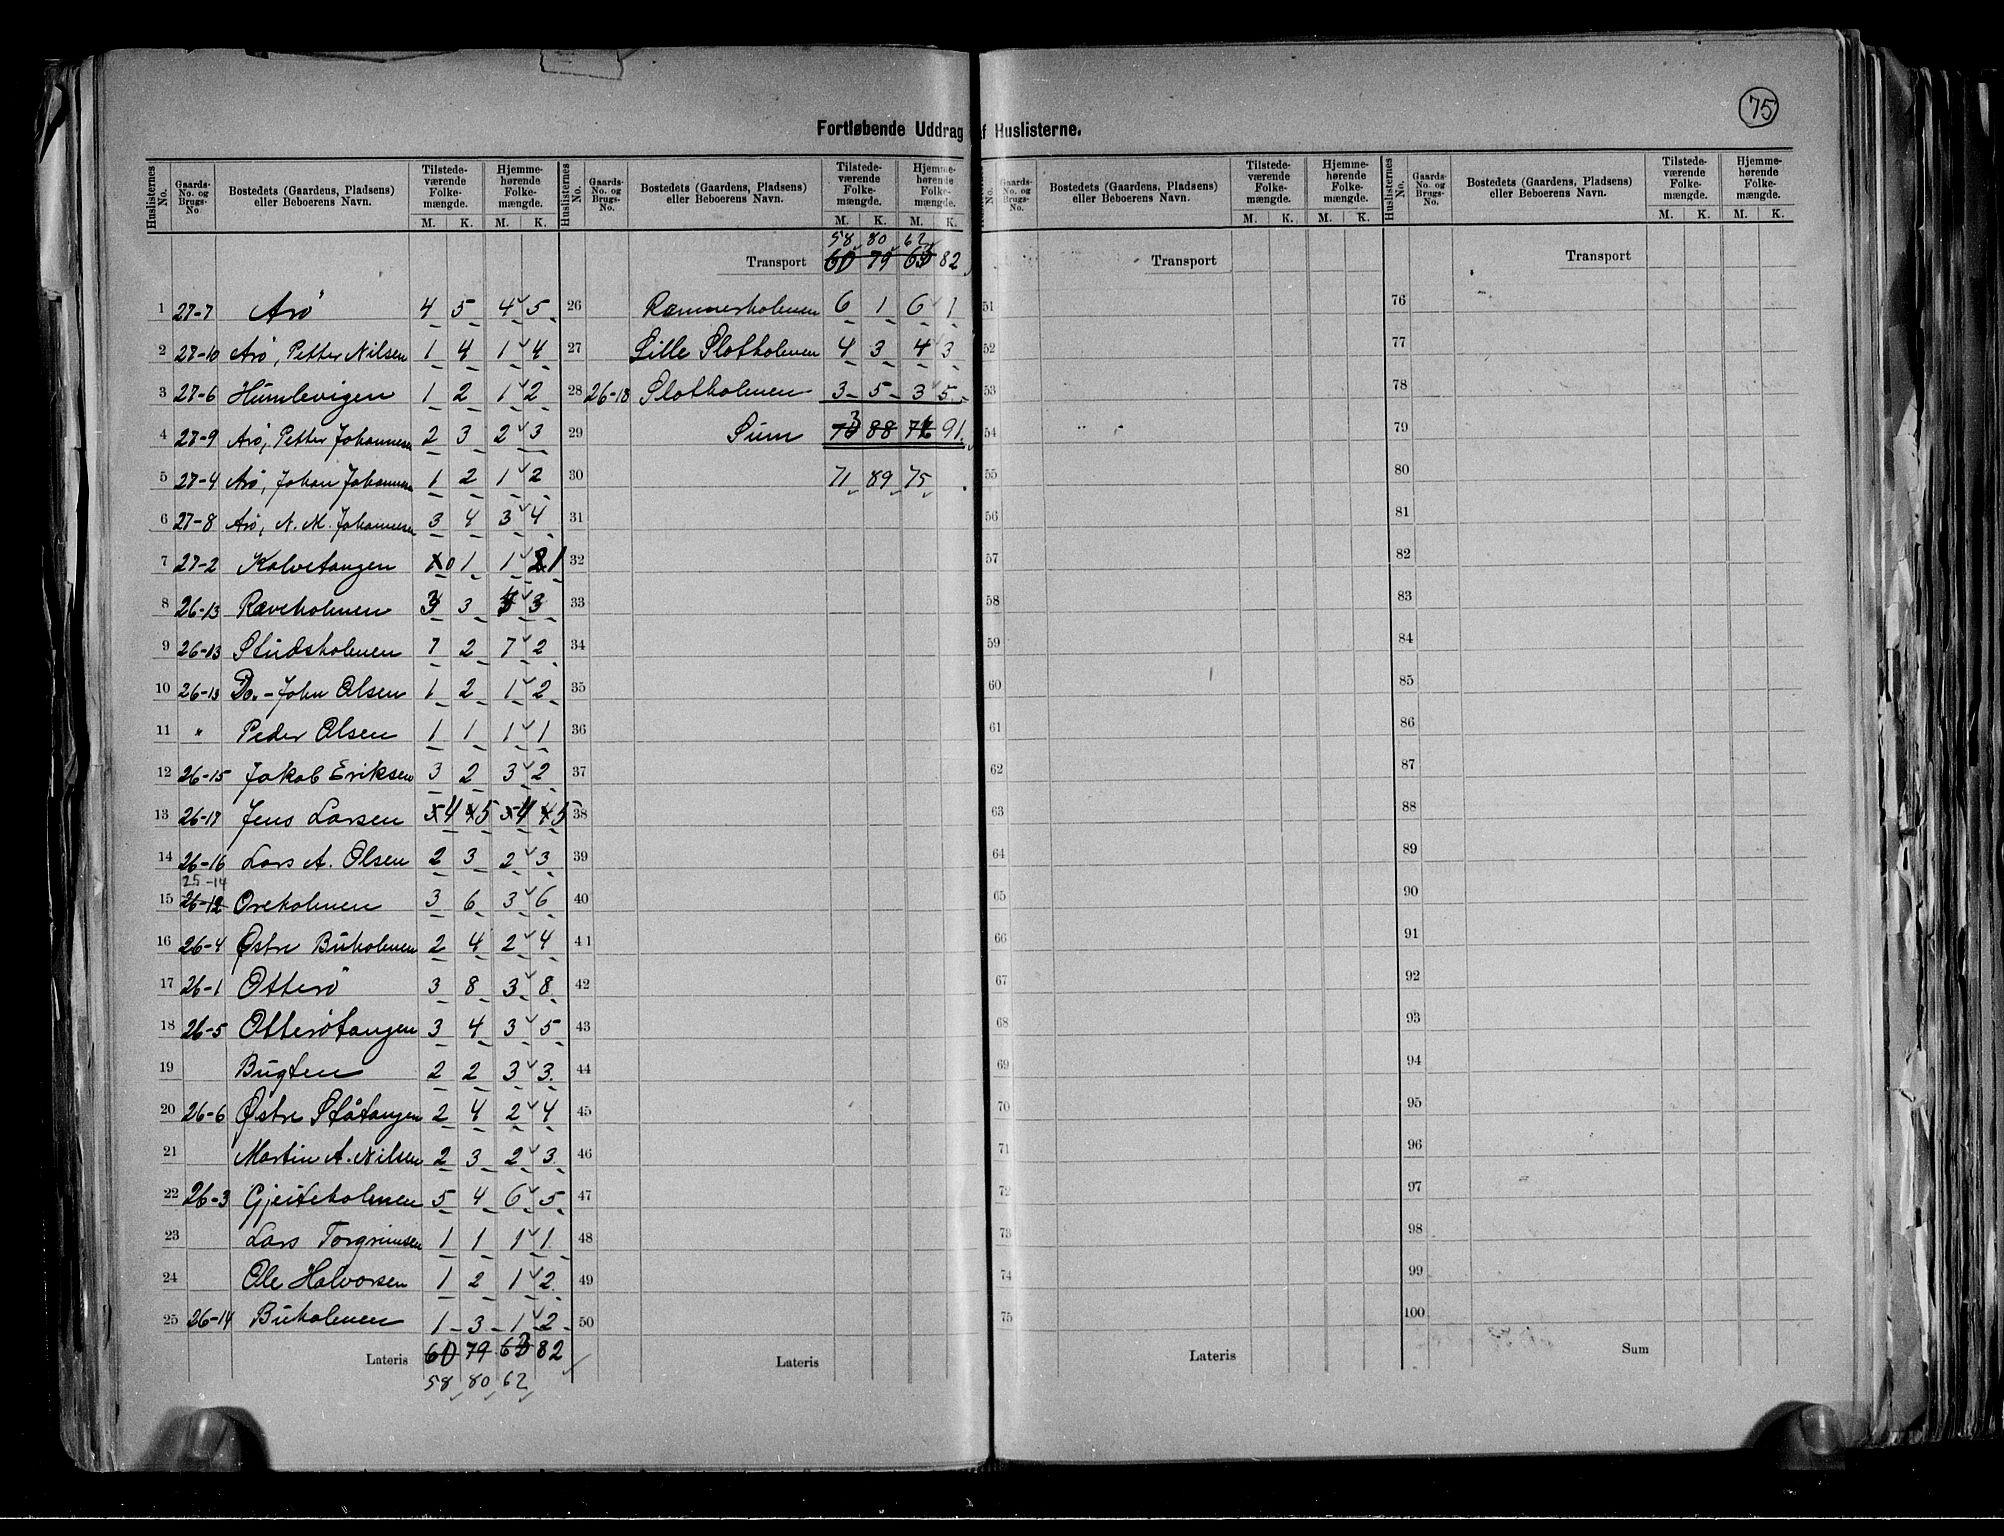 75
Fortløbende Uddrag af Huslisterne.
Huslisternes No. Gaards-No. og Brugs-No. Bostedets (Gaardens, Pladsens) eller Beboerens Navn. Tilstedeværende Folkemængde. M. K. Hjemmehørende Folkemængde. M. K.
1 27-7 Arö 4 5 4 5
2 27-10 Arö, Petter Nilsen 1 4 1 4
3 27-6 Humlevigen 1 2 1 2
4 27-9 Arö, Petter Johannesen 2 3 2 3
5 27-4 Arö, Johan Johannesen 1 2 1 2
6 27-8 Arö, N. M. Johannesen 3 4 3 4
7 27-2 Kalvetangen 0 1 1 1
8 26-13 Ræveholmen 3 3 3
9 26-13 Studsholmen 7 2 7 2
10 26-13 Do. - John Olsen 1 2 1 2
11 " Peder Olsen 1 1 1 1
12 26-15 Jakob Eriksen 3 2 3 2
13 26-17 Jens Larsen 4 5 4 5
14 26-16 Lars A. Olsen 2 3 2 3
25-14
15 26-12 Oreholmen 3 6 3 6
16 26-4 Østre Buholmen 2 4 2 4
17 26-1 Otterö 3 8 3 8
18 26-5 Otterötangen 3 4 3 5
19 Bugten 2 2 3 3
20 26-6 Østre Ståtangen 2 4 2 4
21 Martin A. Nilsen 2 3 2 3
22 26-3 Gjeiteholmen 5 4 6 5
23 Lars Torgrimsen 1 1 1 1
24 Ole Halvorsen 1 2 1 2
25 26-14 Buholmen 1 3 1 2
Lateris 60 79 63 82
58 80 62
Huslisternes No. Gaards-No. og Brugs-No. Bostedets (Gaardens, Pladsens) eller Beboerens Navn. Tilstedeværende Folkemængde. M. K. Hjemmehørende Folkemængde. M. K.
58 80 62
Transport 60 79 63 82
26 Ramnerholmen 6 1 6 1
27 Lille Slotholmen 4 3 4 3
28 26-18 Slotholmen 3 5 3 5
29 Sum 73 88 76 91
30 71 89 75
31
32
33
34
35
36
37
38
39
40
41
42
43
44
45
46
47
48
49
50
Lateris
No. Gaards-No. og Brugs-No. Bostedets (Gaardens, Pladsens) eller Beboerens Navn. Tilstedeværende Folkemængde. M. K. Hjemmehørende Folkemængde. M. K.
Transport
51
52
53
54
55
56
57
58
59
60
61
62
63
64
65
66
67
68
69
70
71
72
73
74
75
Lateris
Huslisternes No. Gaards-No. og Brugs-No. Bostedets (Gaardens, Pladsens) eller Beboerens Navn. Tilstedeværende Folkemængde. M. K. Hjemmehørende Folkemængde. M. K.
Transport
76
77
78
79
80
81
82
83
84
85
86
87
88
89
90
91
92
93
94
95
96
97
98
99
100
Sum